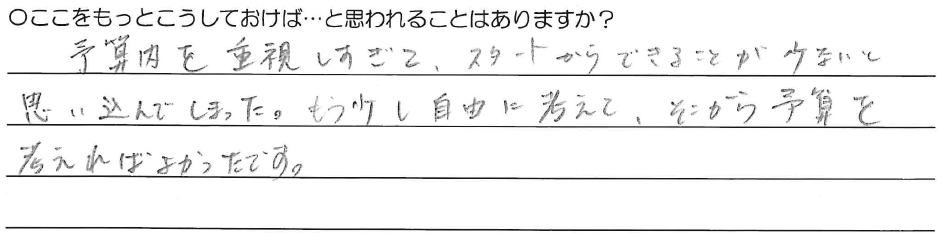 ○ここをもっとこうしておけば…と思われることはありますか？
予算内を重視しすぎて、スタートからできることが少ないと
思い込んでしまった。もう少し自由に考えて、そこから予算を
考えればよかったです。